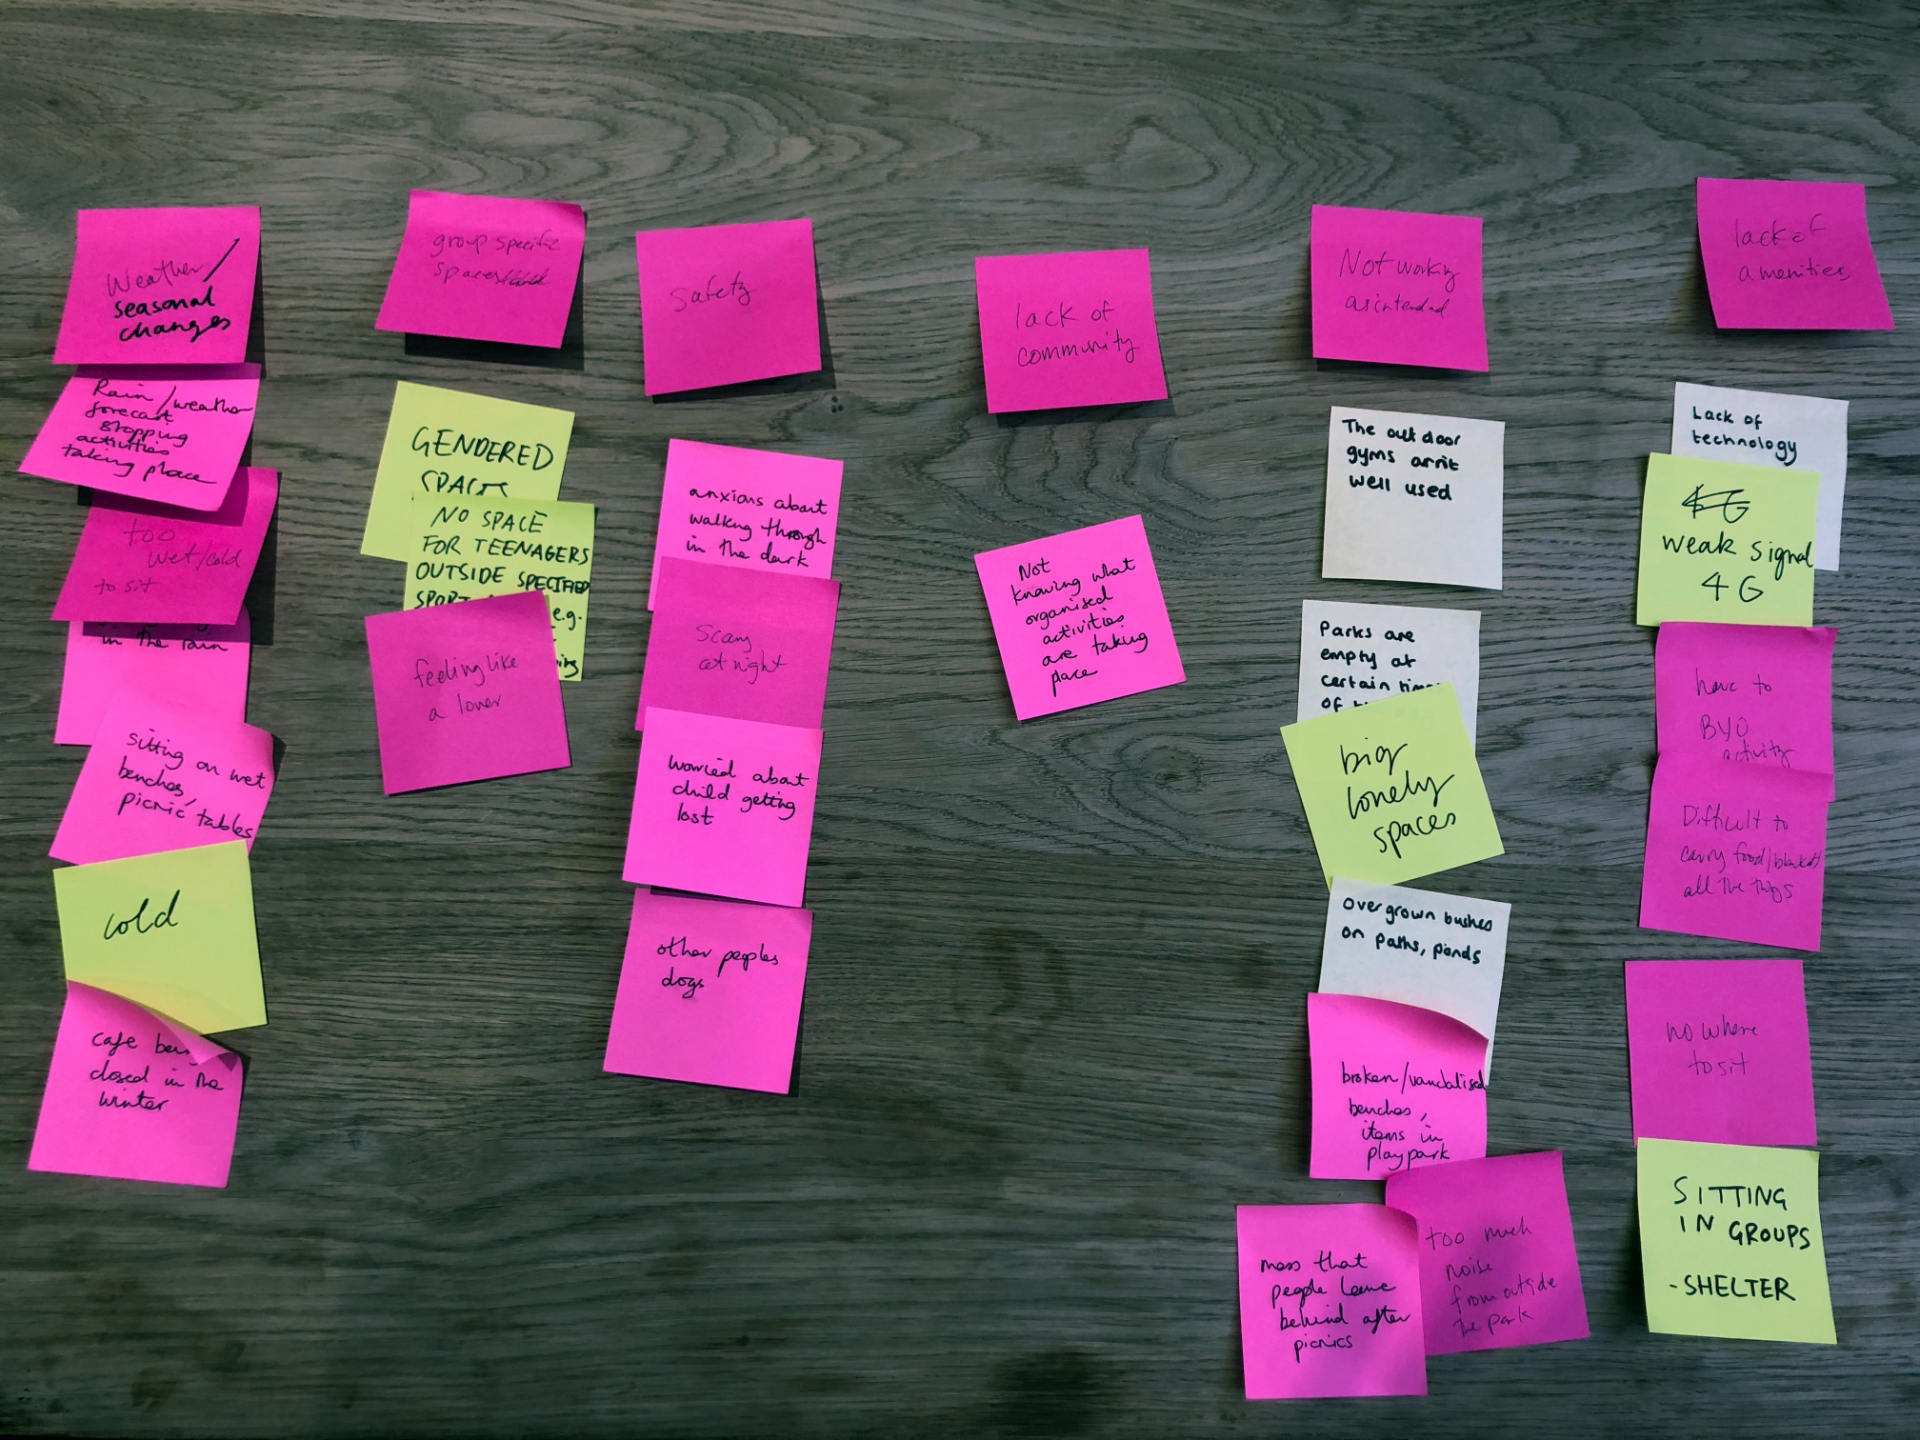 Weather/
seasonal
changes
Rain/weather
forecast
stopping
activities
taking place
too
wet/cold
to sit
in the rain
sitting on wet
benches,
picnic tables
cold
cafe
closed in the
winter
group specific
spaces
GENDERED
SPACES
NO SPACE
FOR TEENAGERS
OUTSIDE SPECIFIED
SPORT
e.g.
feeling like
a loner
Safety
anxious about
walking through
in the dark
Scary
at night
worried about
child getting
lost
other peoples
dogs
lack of
community
Not
knowing what
organised
activities
are taking
place
Not working
as intended
The outdoor
gyms arn't
well used
Parks are
empty at
certain
of
big
lonely
spaces
Overgrown bushes
on paths, ponds
broken/vandalised
benches,
items in
play park
mess that
people leave
behind after
picnics
too much
noise
from outside
the park
lack of
amenities
Lack of
technology
weak signal
4G
have to
BYO
activity
Difficult to
carry food/blanket/
all the things
no where
to sit
SITTING
IN GROUPS
-SHELTER